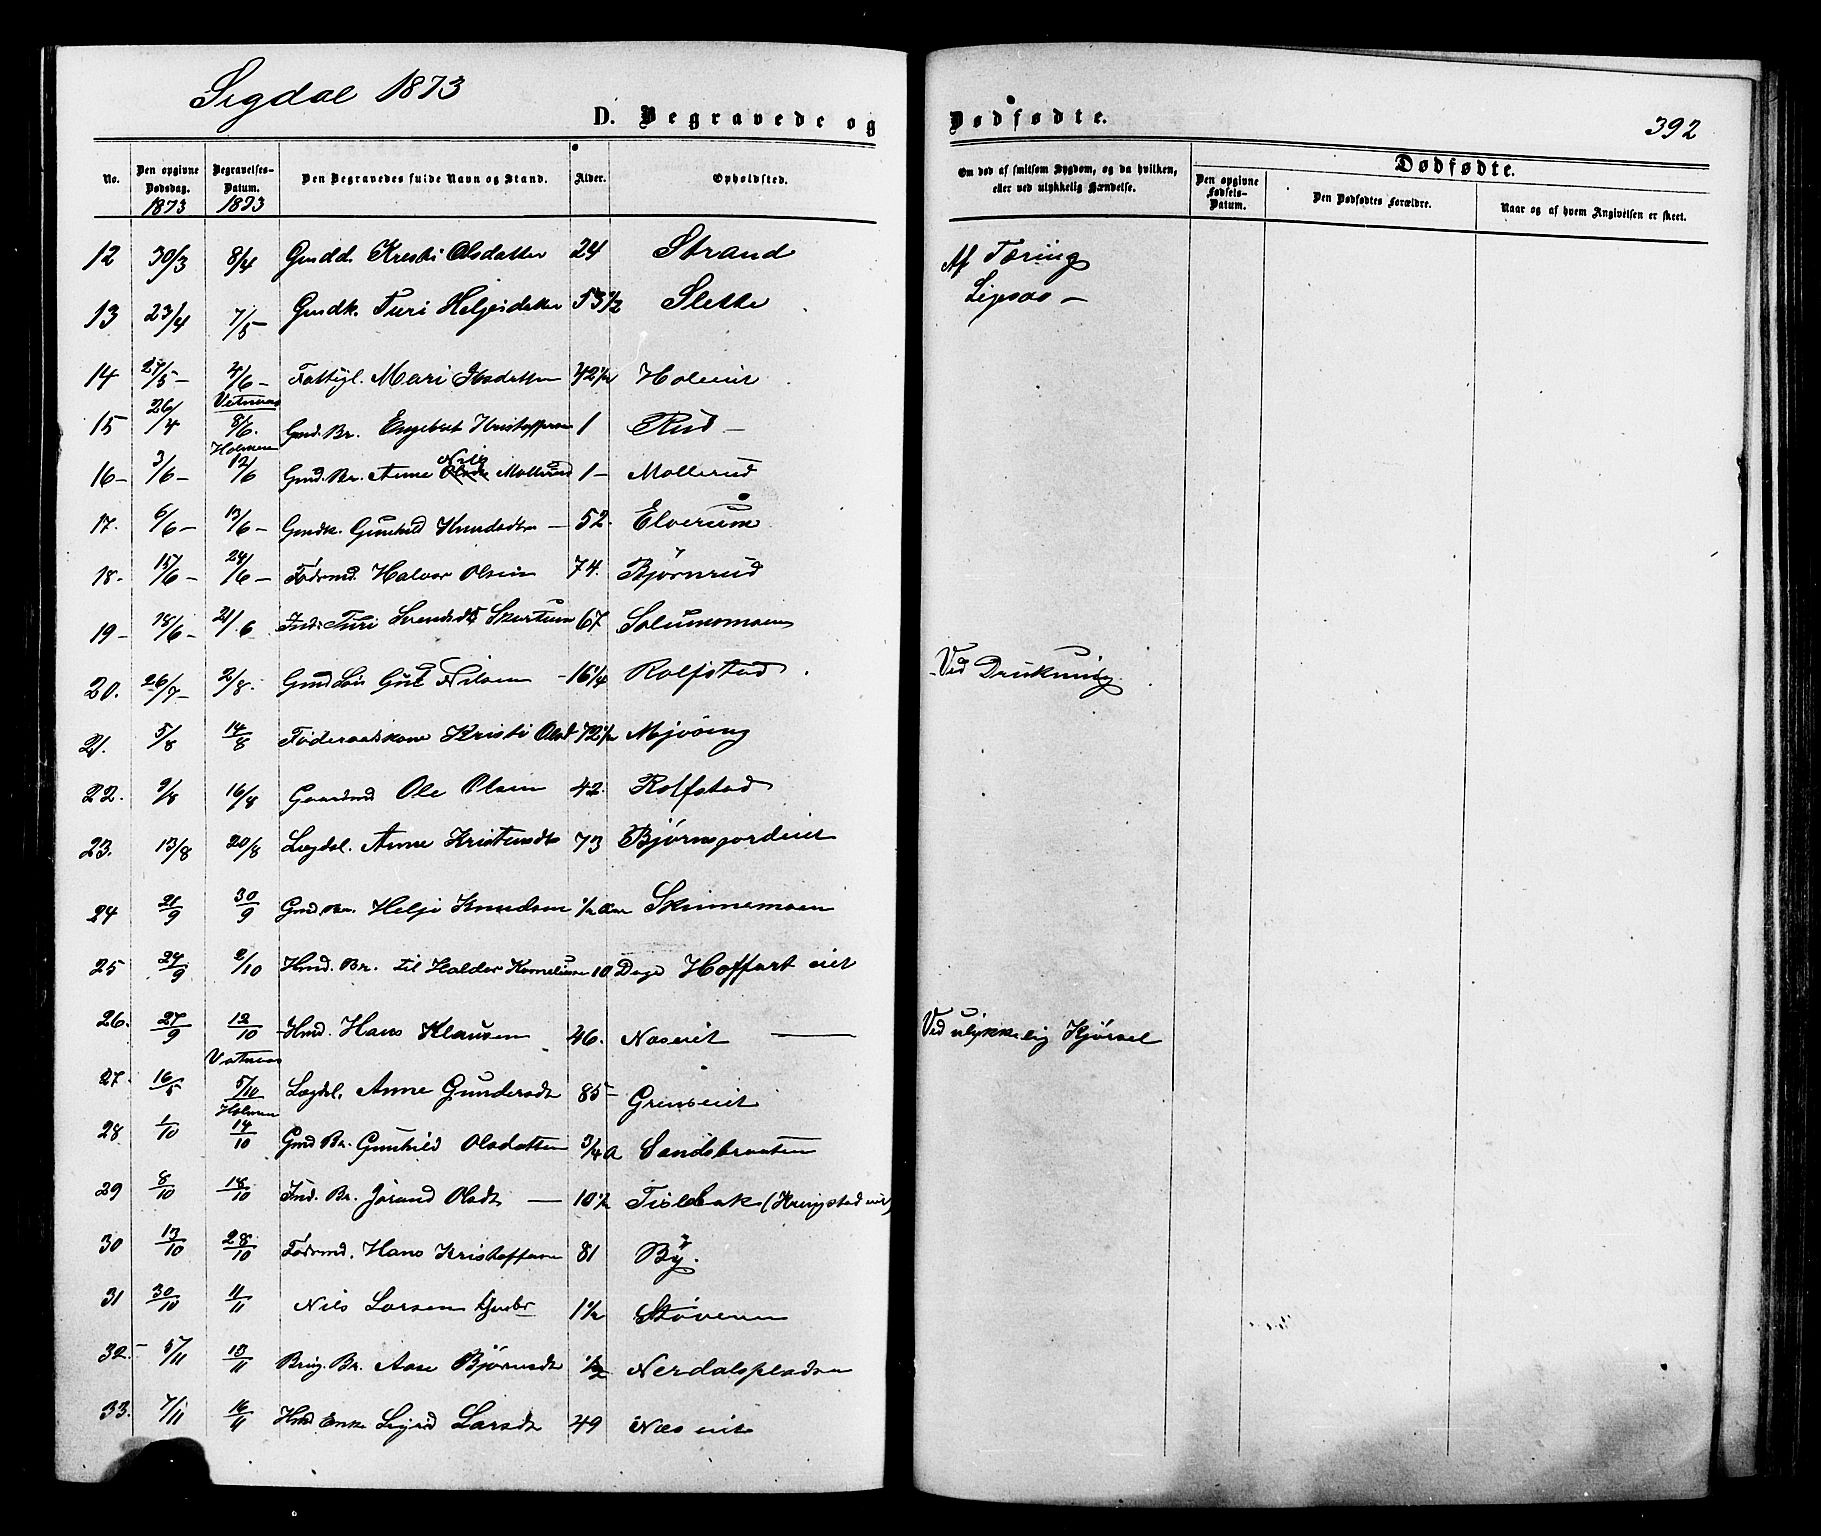 Sigdal 1873
D. Begravede og Dødfødte. 392
No. Den opgivne Dødsdag. 1873 Begravelses-Datum. 1873 Den Begravedes fulde Navn og Stand. Alder. Opholdsted. Om død af smitsom Sygdom, og da hvilken, eller ved ulykkelig Hændelse. Dødfødte.
Den opgivne Fødsels-Datum. Den Dødfødtes Forældre. Naar og af hvem Angivelsen er skeet.
12 30/3 8/4 Gmdd. Kresti Olsdatter 24 Strand Af Tæring
13 23/4 7/5 – Gmdk. Turi Helgesdatter 53 1/2 Slette Ligesaa –
14 27/5 – 4/6 – Fattigl. Mari 42 1/2 Holeeiet
Vatnaas
15 26/4 5/6. Gmd. Br. Engebret Kristoffersen 1 Rud –
Holmen
16 – 3/6 – 12/6 Gmd. Br. Anne Nils Mollerud 1 – Mollerud
17. 6/6 – 13/6 – Gmdk. Gunhild Knudsdtr – 52. Elverum
18. 15/6 – 24/6 – Fødrmd. Halvor Olsen 74. Bjørnrud
19 – 18/6 – 21/6 Inds. Turi Svendsdt Skartum 67 Solumsmoen
20. 26/7 – 2/8. Gmd Søn Gul Nilsen – 16 1/4 Rolfstad. – Ved Drukning.
21. 5/8 14/8 Føderaadskone Kristi Olsd 72 1/2 Mjøsing
22. 9/8 16/8 Gaardmd Ole Olsen 42. Rolfstad
23. 13/8 20/8 Lægdsl. Anne Kristensdt 73 Bjørnsgordeiet
24 21/9 30/9 Gmd. Br. Helge Knudsen 1/2 Aar Skinnemoen
25 24/9 2/10 Hmd. Br. til Halder Korneliusen 10 Dage Hoffart eiet
26. 27/9 12/10 Hmd. Hans Klausen 46. Næseiet — Ved ulykkelig Kjørsel
Vatnaas
27. 16/5 5/10 Lægdsl. Anne Gundersdt 85 – Grenseiet
Holmen
28 1/10 14/10 Gmd Br. Gunhild Olsdatter 3/4 A Sandsbraaten
29 8/10 18/10 Ind. Br. Jørand Olsdt — 10 1/2 Tislebak (Kringstad eie)
30 13/10 28/10 Fødrmd. Hans Kristoffersen 81 By.
31 30/10 11/11 Nils Larsen Gmdbr 1 1/2 Støveren
32. – 5/11 13/11 Brug. Br. Aase Bjørnsdt 1/2 Nerdalspladsen
33. 7/11 16/11 Hmd Enke Sigrid Larsdt 49 Næs eiet